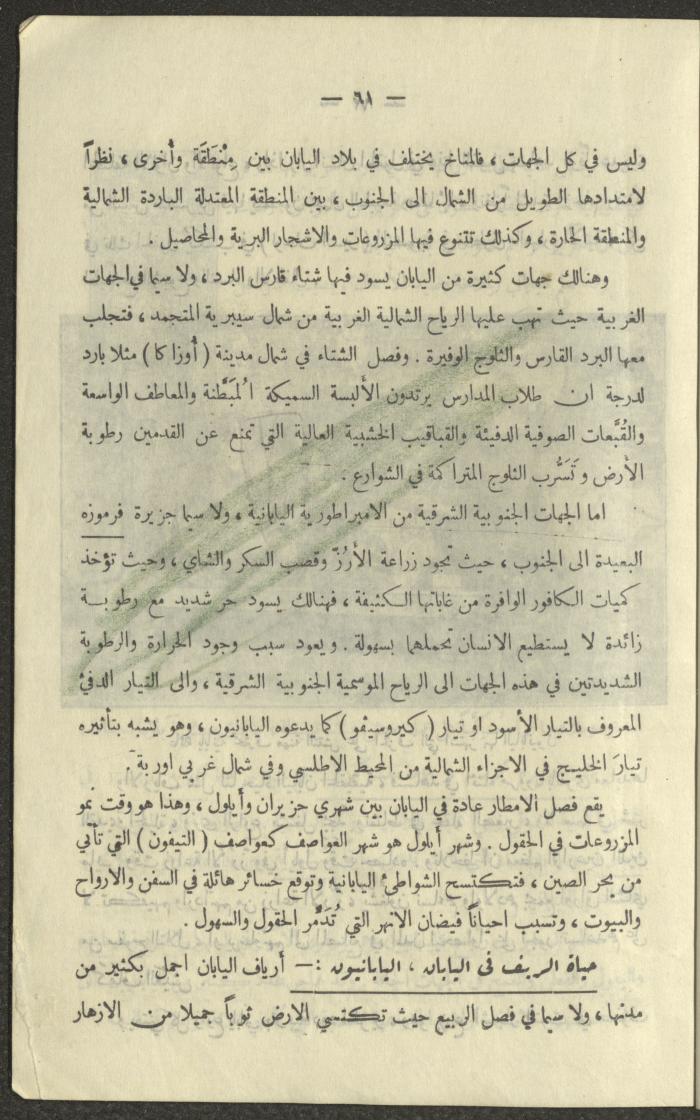 — ٦١ —
وليس في كل الجهات ، فالمناخ يختلف في بلاد اليابان بين مِنْطَقَة وأُخرى ، نظراً
لامتدادها الطويل من الشمال الى الجنوب ، بين المنطقة المعتدلة الباردة الشمالية
والمنطقة الحارة ، وكذلك تتنوع فيها المزروعات والاشجار البرية والمحاصيل .
وهنالك جهات كثيرة من اليابان يسود فيها شتاء قارس البرد ، ولا سيما في الجهات
الغربية حيث تهب عليها الرياح الشمالية الغربية من شمال سيبرية المتجمد ، فتجلب
معها البرد القارس والثلوج الوفيرة . وفصل الشتاء في شمال مدينة ( أوزاكا ) مثلا بارد
لدرجة ان طلاب المدارس يرتدون الألبسة السميكة المُبَطَّنة والمعاطف الواسعة
والقُبَّعات الصوفية الدفيئة والقباقيب الخشبية العالية التي تمنع عن القدمين رطوبة
الأرض وتَسَرُّب الثلوج المتراكمة في الشوارع .
اما الجهات الجنوبية الشرقية من الامبراطورية اليابانية ، ولا سيما جزيرة فرموزه
البعيدة الى الجنوب ، حيث تجود زراعة الأَرُزّ وقصب السكر والشاي ، وحيث تؤخذ
كميات الكافور الوافرة من غاباتها الكثيفة ، فهنالك يسود حر شديد مع رطوبة
زائدة لا يستطيع الانسان تحملهما بسهولة . ويعود سبب وجود الحرارة والرطوبة
الشديدتين في هذه الجهات الى الرياح الموسمية الجنوبية الشرقية ، والى التيار الدفئ
المعروف بالتيار الأسود او تيار ( كيروسيفو ) كما يدعوه اليابانيون ، وهو يشبه بتأثيره
تيارَ الخليج في الاجزاء الشمالية من المحيط الاطلسي وفي شمال غربي اوربة .
يقع فصل الامطار عادة في اليابان بين شهري حزيران وأيلول ، وهذا هو وقت نمو
المزروعات في الحقول . وشهر أيلول هو شهر العواصف كعواصف ( التيفون ) التي تأتي
من بحر الصين ، فتكتسح الشواطئ اليابانية وتوقع خسائر هائلة في السفن والارواح
والبيوت ، وتسبب احياناً فيضان الانهر التي تُدَمِّر الحقول والسهول .
حياة الريف في اليابان ، اليابانيون :— أرياف اليابان اجمل بكثير من
مدنها ، ولا سيما في فصل الربيع حيث تكتسي الارض ثوباً جميلا من الازهار